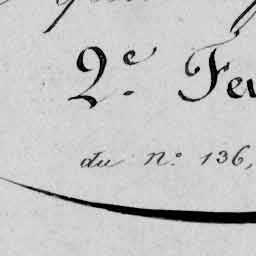 2e. Feu
du n.° 136,